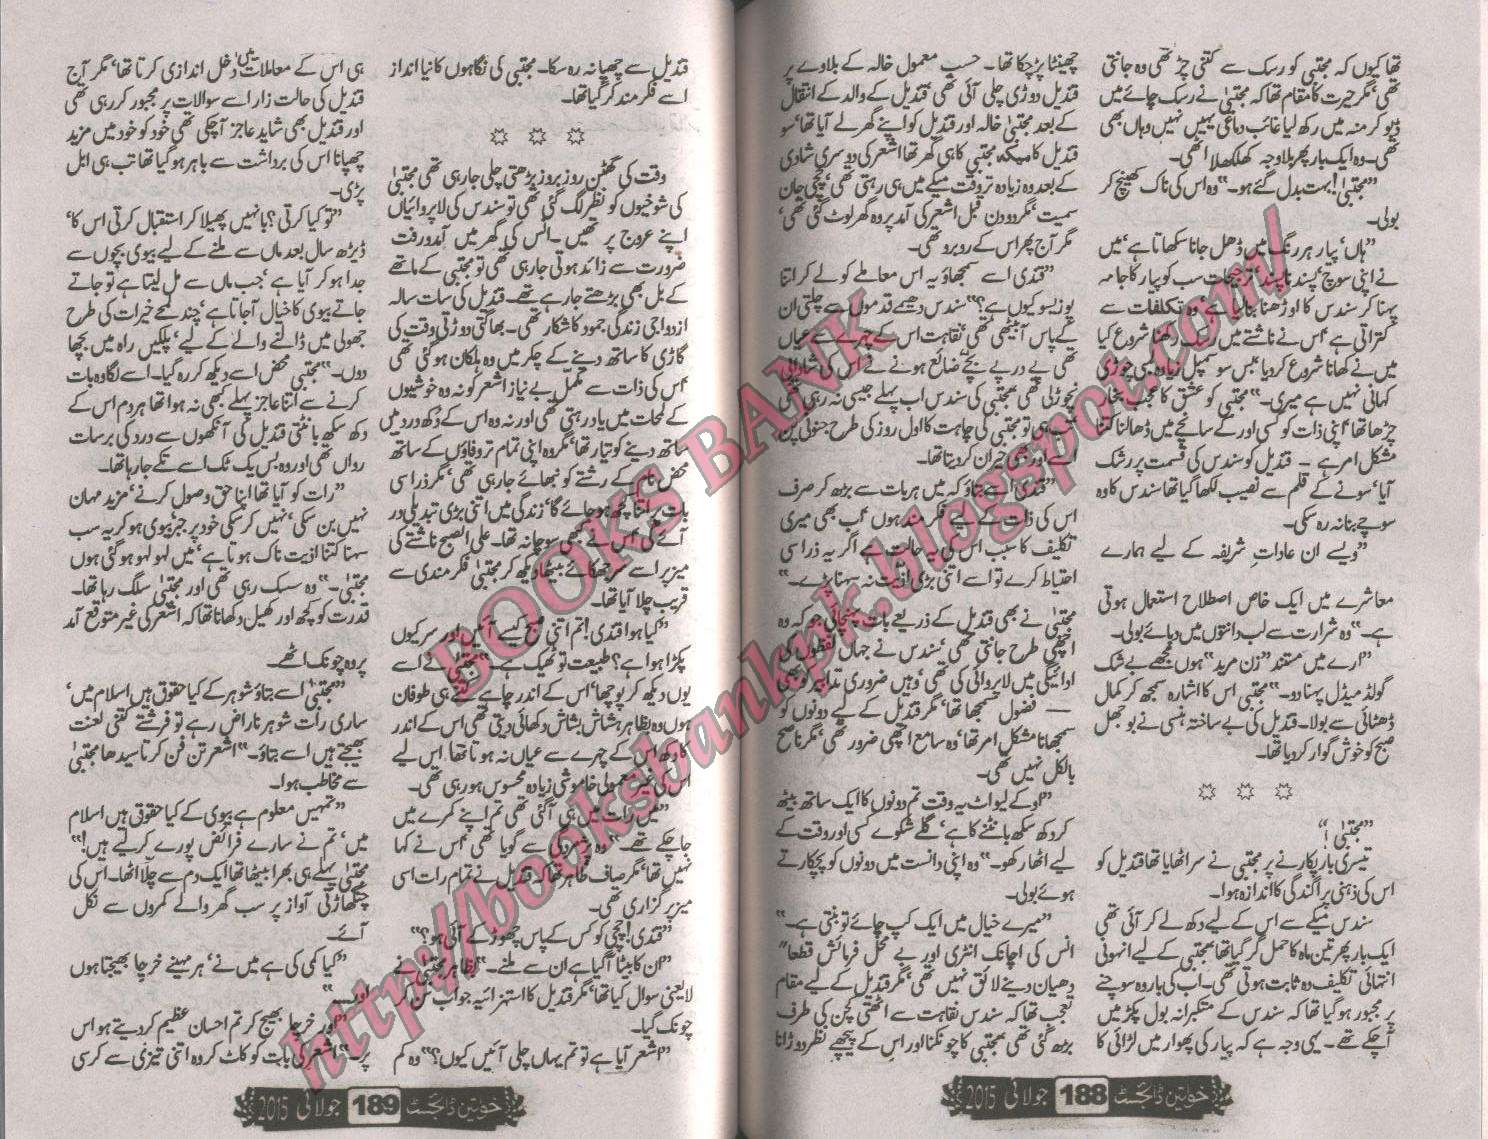 تھا کیوں کہ مجتبیٰ کو رسک سے کتنی چڑ تھی وہ جانتی
تھی، مگر حیرت کا مقام تھا کہ مجتبیٰ نے رسک چائے میں
ڈبو کر منہ میں رکھ لیا غائب دماغی یہیں نہیں وہاں بھی
تھی۔ وہ ایک بار پھر بلاوجہ کھلکھلا اٹھی۔
”مجتبیٰ! بہت بدل گئے ہو۔“ وہ اس کی ناک کھینچ کر
بولی۔
”ہاں‘ پیار ہر رنگ میں ڈھل جانا سکھاتا ہے‘ میں
نے اپنی سوچ‘ پسند ناپسند‘ ترجیحات سب کو پیار کا جامہ
پہنا کر سندس کا اوڑھنا بنا لیا ہے‘ وہ تکلفات سے
کتراتی ہے‘ اس نے ناشتے میں رسک رکھنا شروع کیا
میں نے کھانا شروع کر دیا‘ بس سو سمپل زیادہ لمبی چوڑی
کہانی نہیں ہے میری۔“ مجتبیٰ کو عشق کا عجب بخار
چڑھا تھا‘ اپنی ذات کو کسی اور کے سانچے میں ڈھالنا کتنا
مشکل امر ہے۔ قندیل کو سندس کی قسمت پر رشک
آیا‘ سونے کے قلم سے نصیب لکھا گیا تھا سندس کا وہ
سوچے بنا نہ رہ سکی۔
”ویسے ان عادات شریفہ کے لیے ہمارے
معاشرے میں ایک خاص اصطلاح استعمال ہوتی
ہے۔“ وہ شرارت سے لب دانتوں میں دبائے بولی۔
”ارے میں مستند ”زن مرید“ ہوں مجھے بے شک
گولڈ میڈل پہنا دو۔“ مجتبیٰ اس کا اشارہ سمجھ کر کمال
ڈھٹائی سے بولا۔ قندیل کی بے ساختہ ہنسی نے بوجھل
صبح کو خوش گوار کر دیا تھا۔
☼ ☼ ☼
”مجتبیٰ!“
تیسری بار پکارنے پر مجتبیٰ نے سر اٹھایا تھا قندیل کو
اس کی ذہنی پراگندگی کا اندازہ ہوا۔
سندس میکے سے اس کے لیے دکھ لے کر آئی تھی
ایک بار پھر تین ماہ کا حمل گر گیا تھا‘ مجتبیٰ کے لیے انہونی
انتہائی تکلیف دہ ثابت ہوئی تھی۔ اب کی بار وہ سوچنے
پر مجبور ہو گیا تھا کہ سندس کے متکبرانہ بول پکڑ میں
آ چکے تھے۔ یہی وجہ ہے کہ پیار کی پھوار میں لڑائی کا
چھینٹا پڑ چکا تھا۔ حسب معمول خالہ کے بلاوے پر
قندیل دوڑی چلی آئی تھی قندیل کے والد کے انتقال
کے بعد مجتبیٰ خالہ اور قندیل کو اپنے گھر لے آیا تھا‘ سو
قندیل کا میکہ مجتبیٰ کا ہی گھر تھا اشعر کی دوسری شادی
کے بعد وہ زیادہ تر وقت میکے میں ہی رہتی تھی‘ بچی جان
سمیت‘ مگر دو دن قبل اشعر کی آمد پر وہ گھر لوٹ گئی تھی‘
مگر آج پھر اس کے روبرو تھی۔
”قندی اسے سمجھاؤ یہ اس معاملے کو لے کر اتنا
پوزیسو کیوں ہے؟“ سندس دھیمے قدموں سے چلتی ان
کے پاس آ بیٹھی تھی‘ نقاہت اس کے چہرے سے عیاں
تھی پے در پے بچے ضائع ہونے نے اس کی شادابی
نچوڑ لی تھی مجتبیٰ کی سندس اب پہلے جیسی نہ رہی تھی
تب ہی تو مجتبیٰ کی چاہت کا اول روز کی طرح جنونی پن
اسے اور بھی حیران کر دیتا تھا۔
”قندی اسے بتاؤ کہ میں ہر بات سے بڑھ کر صرف
اس کی ذات کے لیے فکر مند ہوں‘ اب بھی میری
تکلیف کا سبب اس کی یہ حالت ہے اگر یہ ذرا سی
احتیاط کرے تو اسے اتنی بڑی اذیت نہ سہنا پڑے۔“
مجتبیٰ نے بھی قندیل کے ذریعے بات پہنچائی جو کہ وہ
اچھی طرح جانتی تھی‘ سندس نے جہاں لفظوں کی
ادائیگی میں لاپروائی کی تھی‘ وہیں ضروری تدابیر کو بھی
— فضول سمجھا تھا‘ مگر قندیل کے لیے دونوں کو
سمجھانا مشکل امر تھا‘ وہ سامع اچھی ضرور تھی‘ مگر ناصح
بالکل نہیں تھی۔
”اوکے لیو اٹ یہ وقت تم دونوں کا ایک ساتھ بیٹھ
کر دکھ سکھ بانٹنے کا ہے‘ گلے شکوے کسی اور وقت کے
لیے اٹھا رکھو۔“ وہ اپنی دانست میں دونوں کو پچکارتے
ہوئے بولی۔
”میرے خیال میں ایک کپ چائے تو بنتی ہے۔“
انس کی اچانک انٹری اور بے محل فرمائش قطعا“
دھیان دینے لائق نہیں تھی‘ مگر قندیل کے لیے مقام
تعجب تھا کہ سندس نقاہت سے اٹھتی کچن کی طرف
بڑھ گئی تھی مجتبیٰ کا چونکنا اور اس کے پیچھے نظر دوڑانا
خواتین ڈائجسٹ 188 جولائی 2015
قندیل سے چھپا نہ رہ سکا۔ مجتبیٰ کی نگاہوں کا نیا انداز
اسے فکر مند کر گیا تھا۔
☼ ☼ ☼
وقت کی گھٹن روز بروز بڑھتی چلی جا رہی تھی مجتبیٰ
کی شوخیوں کو نظر لگ گئی تھی تو سندس کی لاپروائیاں
اپنے عروج پر تھیں۔ انس کی گھر میں آمدورفت
ضرورت سے زائد ہوتی جا رہی تھی تو مجتبیٰ کے ماتھے
کے بل بھی بڑھتے جا رہے تھے۔ قندیل کی سات سالہ
ازدواجی زندگی جمود کا شکار تھی۔ بھاگتی دوڑتی وقت کی
گاڑی کا ساتھ دینے کے چکر میں وہ ہلکان ہو گئی تھی
اس کی ذات سے مکمل بے نیاز اشعر کو نہ وہ خوشیوں
کے لمحات میں یاد رہتی تھی اور نہ وہ اس کے دکھ درد میں
ساتھ دینے کو تیار تھا‘ مگر وہ اپنی تمام تر وفاؤں کے ساتھ
محض نام کے رشتے کو نبھائے جا رہی تھی‘ مگر ذرا سی
بات پر اتنا کچھ ہو جائے گا‘ زندگی میں اتنی بڑی تبدیلی در
آئے گی‘ اس نے کبھی سوچا نہ تھا۔ علی الصبح ناشتے کی
میز پر اسے سر جھکائے بیٹھا دیکھ کر مجتبیٰ فکر مندی سے
قریب چلا آیا تھا۔
”کیا ہوا قندی! تم اتنی صبح کیسے آئیں اور سر کیوں
پکڑا ہوا ہے؟ طبیعت تو ٹھیک ہے۔“ مجتبیٰ نے اسے
یوں دیکھ کر پوچھا‘ اس کے اندر چاہے کتنے ہی طوفان
ہوں وہ بظاہر ہشاش بشاش دکھائی دیتی تھی اس کے اندر
کا دکھ اس کے چہرے سے عیاں نہ ہوتا تھا‘ اس لیے
اس کی غیر معمولی خاموشی زیادہ محسوس ہو رہی تھی۔
”میں رات میں ہی آ گئی تھی تم اپنے کمرے میں
جا چکے تھے۔“ وہ سردی سے گویا تھی‘ اس نے کہا
نہیں تھا‘ مگر صاف ظاہر تھا کہ قندیل نے تمام رات اسی
میز پر گزاری تھی۔
”قندی! بچی کو کس کے پاس چھوڑ کے آئی ہو؟“
”ان کا بیٹا آ گیا ہے ان سے ملنے۔“ بظاہر مجتبیٰ نے
لایعنی سوال کیا تھا‘ مگر قندیل کا استہزائیہ جواب سن کر
چونک گیا۔
”اشعر آیا ہے تو تم یہاں چلی آئیں کیوں؟“ وہ کم
ہی اس کے معاملات میں دخل اندازی کرتا تھا‘ مگر آج
قندیل کی حالت زار اسے سوالات پر مجبور کر رہی تھی
اور قندیل بھی شاید عاجز آ چکی تھی خود کو خود میں مزید
چھپانا اس کی برداشت سے باہر ہو گیا تھا تب ہی ابل
پڑی۔
”تو کیا کرتی؟ بانہیں پھیلا کر استقبال کرتی اس کا‘
ڈیڑھ سال بعد ماں سے ملنے کے لیے بیوی بچوں سے
جدا ہو کر آیا ہے‘ جب ماں سے مل لیتا ہے تو جاتے
جاتے بیوی کا خیال آ جاتا ہے‘ چند لمحے خیرات کی طرح
جھولی میں ڈالنے والے کے لیے‘ پلکیں راہ میں بچھا
دوں۔“ مجتبیٰ محض اسے دیکھ کر رہ گیا۔ اسے لگا وہ بات
کرنے سے اتنا عاجز پہلے کبھی نہ ہوا تھا ہر دم اس کے
دکھ سکھ بانٹتی قندیل کی آنکھوں سے درد کی برسات
رواں تھی اور وہ بس یک ٹک اسے تکے جا رہا تھا۔
”رات کو آیا تھا اپنا حق وصول کرنے‘ مزید مہان
نہیں بن سکی‘ نہیں کر سکی خود پر جبر بیوی ہو کر یہ سب
سہنا کتنا اذیت ناک ہوتا ہے‘ میں لہو لہو ہو گئی ہوں
مجتبیٰ۔“ وہ سسک رہی تھی اور مجتبیٰ سلگ رہا تھا۔
قدرت کو کچھ اور کھیل دکھانا تھا کہ اشعر کی غیر متوقع آمد
پر وہ چونک اٹھے۔
”مجتبیٰ اسے بتاؤ شوہر کے کیا حقوق ہیں اسلام میں‘
ساری رات شوہر ناراض رہے تو فرشتے کتنی لعنت
بھیجتے ہیں اسے بتاؤ۔“ اشعر تن فن کرتا سیدھا مجتبیٰ
سے مخاطب ہوا۔
”تمہیں معلوم ہے بیوی کے کیا حقوق ہیں اسلام
میں‘ تم نے سارے فرائض پورے کر لیے ہیں!“
مجتبیٰ پہلے ہی بھرا بیٹھا تھا ایک دم سے چلا اٹھا۔ اس کی
چنگھاڑتی آواز پر سب گھر والے کمروں سے نکل
آئے۔
”کیا کمی کی ہے میں نے‘ ہر مہینے خرچا بھیجتا ہوں
اور۔۔۔“
”اور خرچا بھیج کر تم احسان عظیم کر دیتے ہو اس
پر۔“ اشعر کی بات کو کاٹ کر وہ اتنی تیزی سے کرسی
خواتین ڈائجسٹ 189 جولائی 2015
BOOKS BANK
http://booksbankpk.blogspot.com/